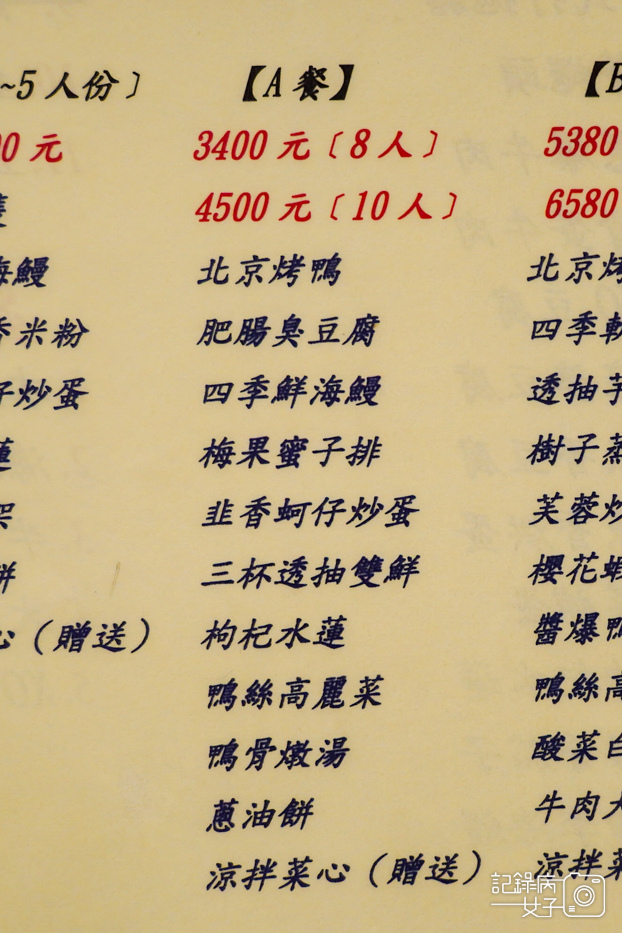 ~5人份〕
0元
海鰻
香米粉
仔炒蛋
蓮
架
餅
心（贈送）
【A餐】
3400元〔8人〕
4500元〔10人〕
北京烤鴨
肥腸臭豆腐
四季鮮海鰻
梅果蜜子排
韭香蚵仔炒蛋
三杯透抽雙鮮
枸杞水蓮
鴨絲高麗菜
鴨骨燉湯
蔥油餅
涼拌菜心（贈送）
【B
5380
6580
北京烤
四季軟
透抽芋
樹子蒸
芙蓉炒
櫻花蝦
醬爆鴨
鴨絲高
酸菜白
牛肉大
涼拌菜
記錄病女子